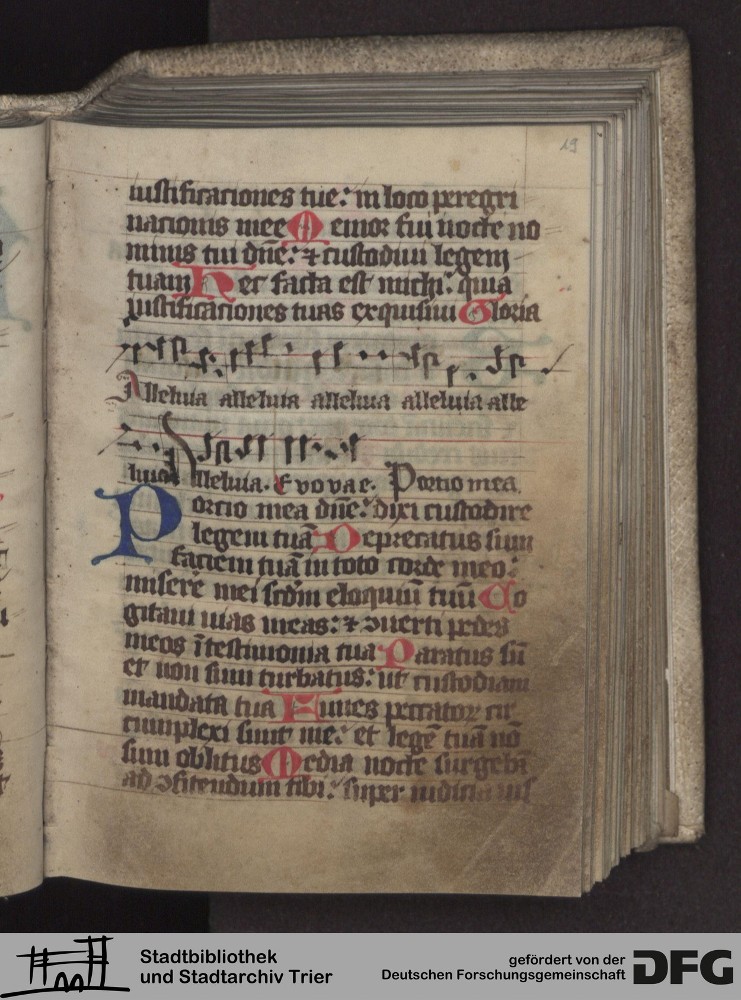 19
iustificaciones tue: in loco peregri
nacionis mee Memor fui nocte no
minis tui dn̄e: ⁊ custodiui legem
tuam Hec facta est michi: quia
iustificaciones tuas exquisiui Gloria
Alleluia alleluia alleluia alleluia alle
luia Alleluia. Evovae. Portio mea.
Portio mea dn̄e: dixi custodire
legem tuā Deprecatus sum
faciem tuā in toto corde meo:
miserē mei scd̄m eloquiū tuū Co
gitaui uias meas: ⁊ ꝯuerti pedes
meos ī testimonia tua Paratus sū
et non sum turbatus: ut custodiam
mandata tua Funes peccatoꝝ cir
cumplexi sunt me: et legē tuā nō
sum oblitus Media nocte surgebā
ad ꝯfitendum tibi: super iudicia
Stadtbibliothek
und Stadtarchiv Trier
gefördert von der
Deutschen Forschungsgemeinschaft
DFG